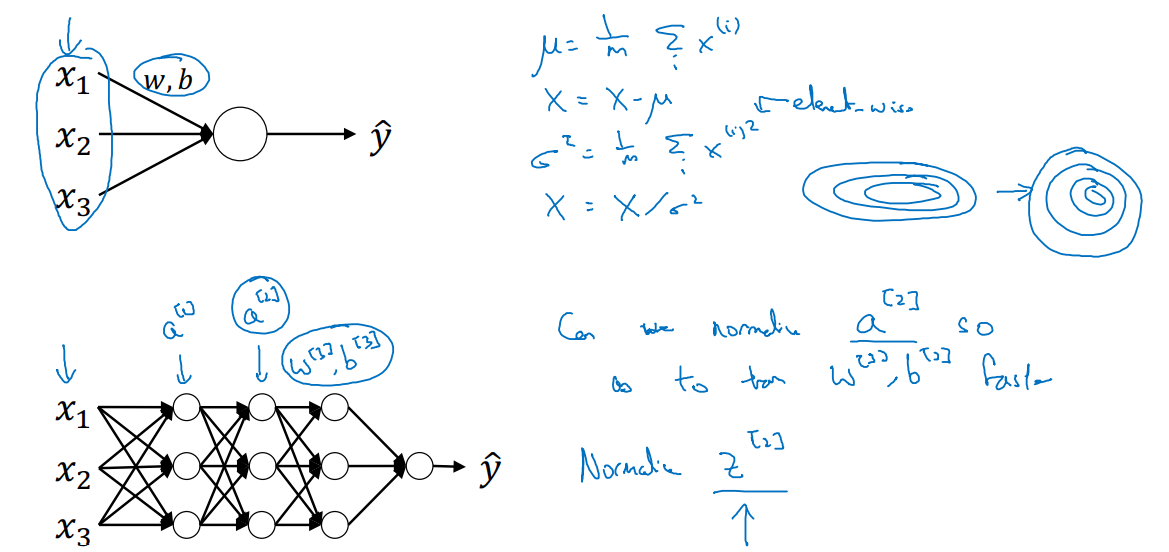 x₁
w, b
x₂
ŷ
x₃
μ = 1/m Σᵢ x⁽ⁱ⁾
X = X - μ
σ² = 1/m Σᵢ x⁽ⁱ⁾² ← element-wise
X = X/σ²
a^[1]
a^[2]
w^[3], b^[3]
x₁
x₂
ŷ
x₃
Can we normalize a^[2] so
as to train w^[3], b^[3] faster
Normalize z^[2]